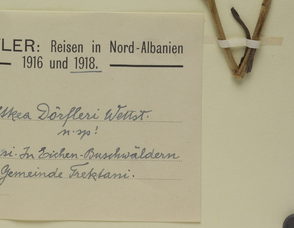 LER: Reisen in Nord-Albanien
1916 und 1918.
Dörfleri Wettst.
n. sp!
si. In Eichen-Buschwäldern
Gemeinde